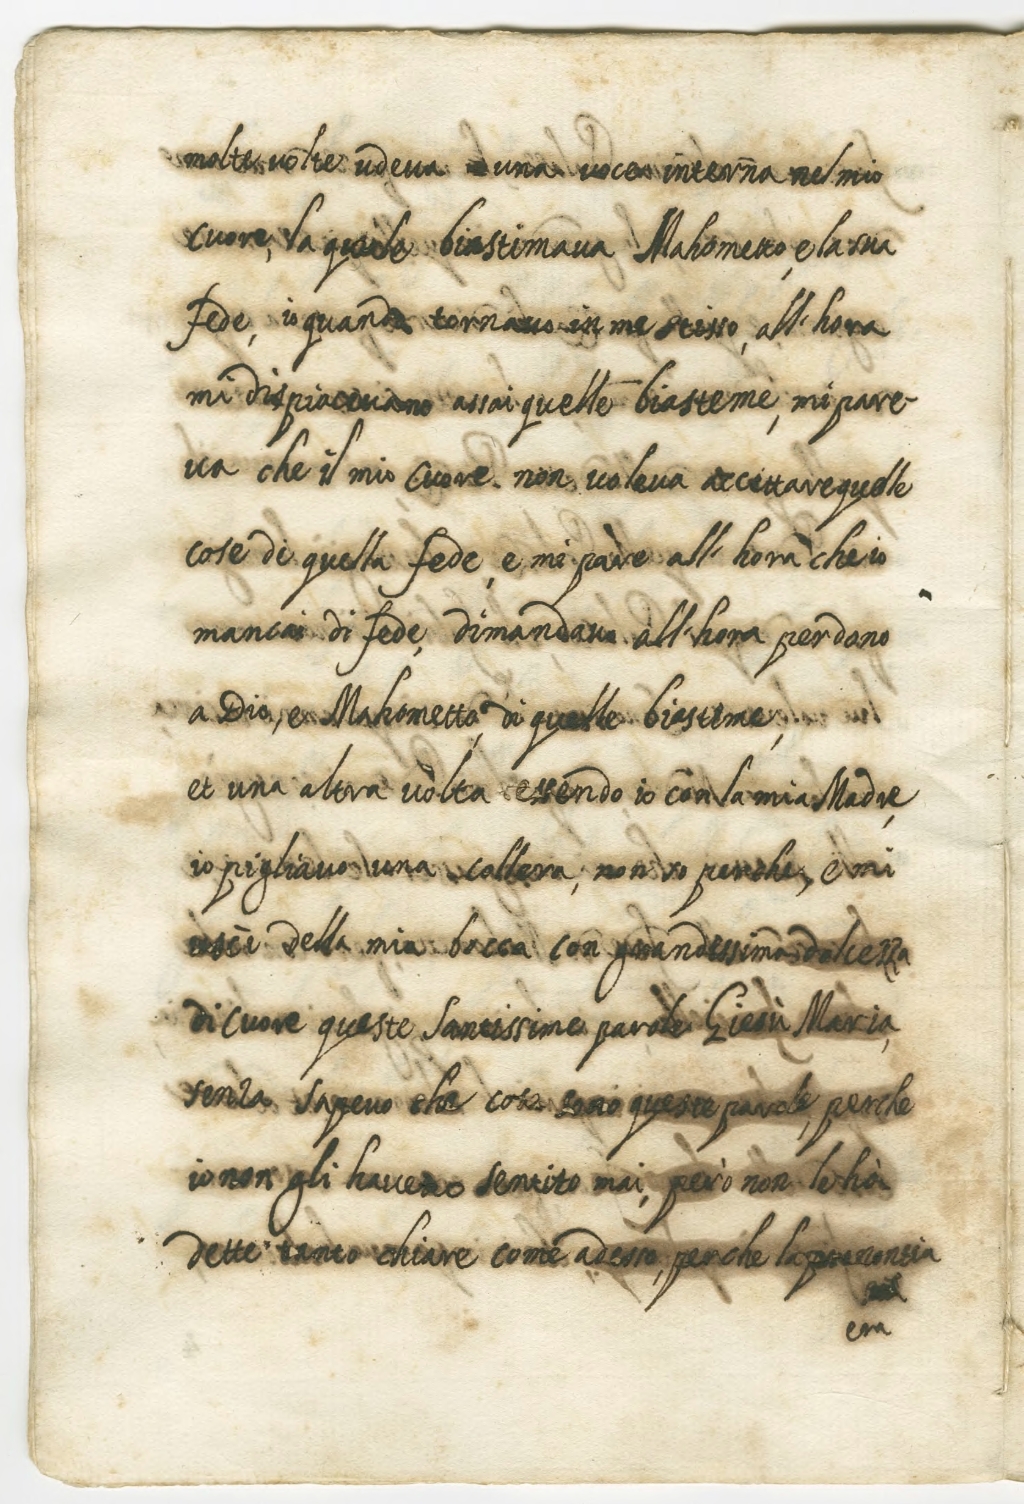 molte uolte udeua una uoce interna nel mio
cuore, la quale biastimaua Mahometto, e la sua
fede, io quando tornauo in me stisso, all' hora
mi dispiaceuano assai quelle biasteme, mi pare-
ua che il mio cuore non uoleua accettare quelle
cose di quella fede, e mi pare all' hora che io
mancai di fede, dimandauo all' hora perdono
a Dio, e Mahometto, di quelle biasteme,
et una altra uolta essendo io con la mia Madre,
io pigliauo una collera, non so perche, e mi
uscì della mia bocca con grandissima dolcezza
di cuore queste Santissime parole Giesù Maria,
senza sapeuo che cosa sono queste parole, perche
io non gli haueuo sentito mai, però non le hò
dette tanto chiare come adesso, perche la prononsia
era